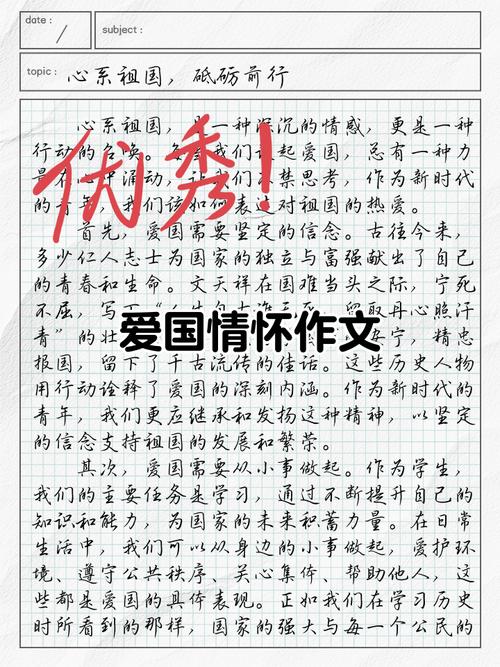 date：
subject：
topic： 心系祖国，砥砺前行
心系祖国，是一种深沉的情感，更是一种
行动的召唤。每当我们谈起爱国，总有一种力
量在心中涌动，让我们不禁思考，作为新时代
的青年，我们该如何表达对祖国的热爱。
优秀！
首先，爱国需要坚定的信念。古往今来，
多少仁人志士为国家的独立与富强献出了自己
的青春和生命。文天祥在国难当头之际，宁死
不屈，写下“人生自古谁无死，留取丹心照汗
青”的壮 安宁，精忠
爱国情怀作文
报国，留下了千古流传的佳话。这些历史人物
用行动诠释了爱国的深刻内涵。作为新时代的
青年，我们更应继承和发扬这种精神，以坚定
的信念支持祖国的发展和繁荣。
其次，爱国需要从小事做起。作为学生，
我们的主要任务是学习，通过不断提升自己的
知识和能力，为国家的未来积蓄力量。在日常
生活中，我们可以从身边的小事做起，爱护环
境、遵守公共秩序、关心集体、帮助他人，这
些都是爱国的具体表现。正如我们在学习历史
时所看到的那样，国家的强大与每一个公民的